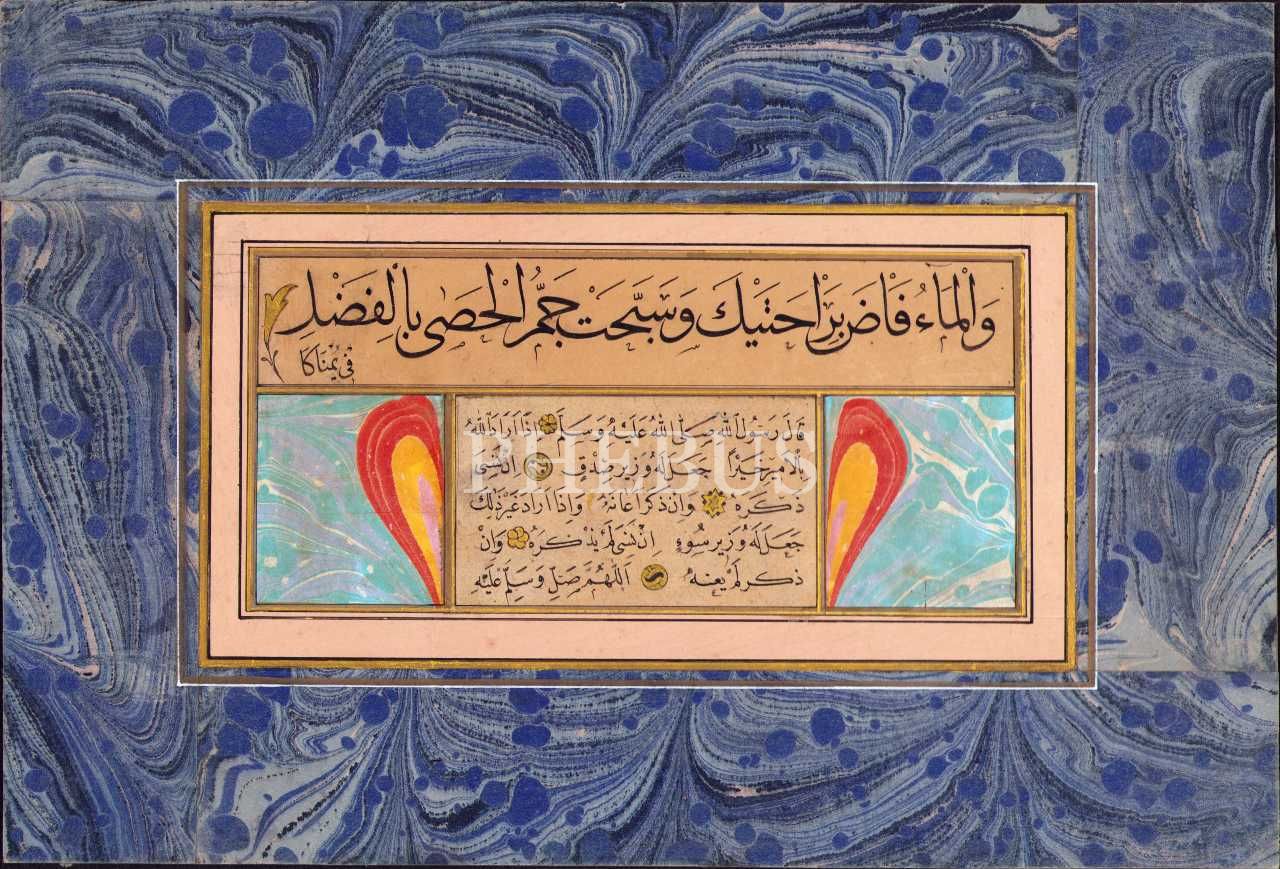 وَالْمَاءُ فَاضَ بِرَاحَتَيْكَ وَسَبَّحَتْ جَمُّ الْحَصَى بِالْفَضْلِ
فى يُمْنَاكَا
قَالَ رَسُولُ اللهِ صَلَّى اللهُ عَلَيْهِ وَسَلَّمَ اِذَا اَرَادَ اللهُ
بِالامير خَيْرًا جَعَلَ لَهُ وَزِيرَ صِدْقٍ اِنْ نَسِىَ
ذَكَّرَهُ وَاِنْ ذَكَرَ اَعَانَهُ وَاِذَا اَرَادَ غَيْرَ ذٰلِكَ
جَعَلَ لَهُ وَزِيرَ سُوءٍ اِنْ نَسِىَ لَمْ يُذَكِّرْهُ وَاِنْ
ذَكَرَ لَمْ يُعِنْهُ اَللّٰهُمَّ صَلِّ وَسَلِّمْ عَلَيْهِ
PHEBUS